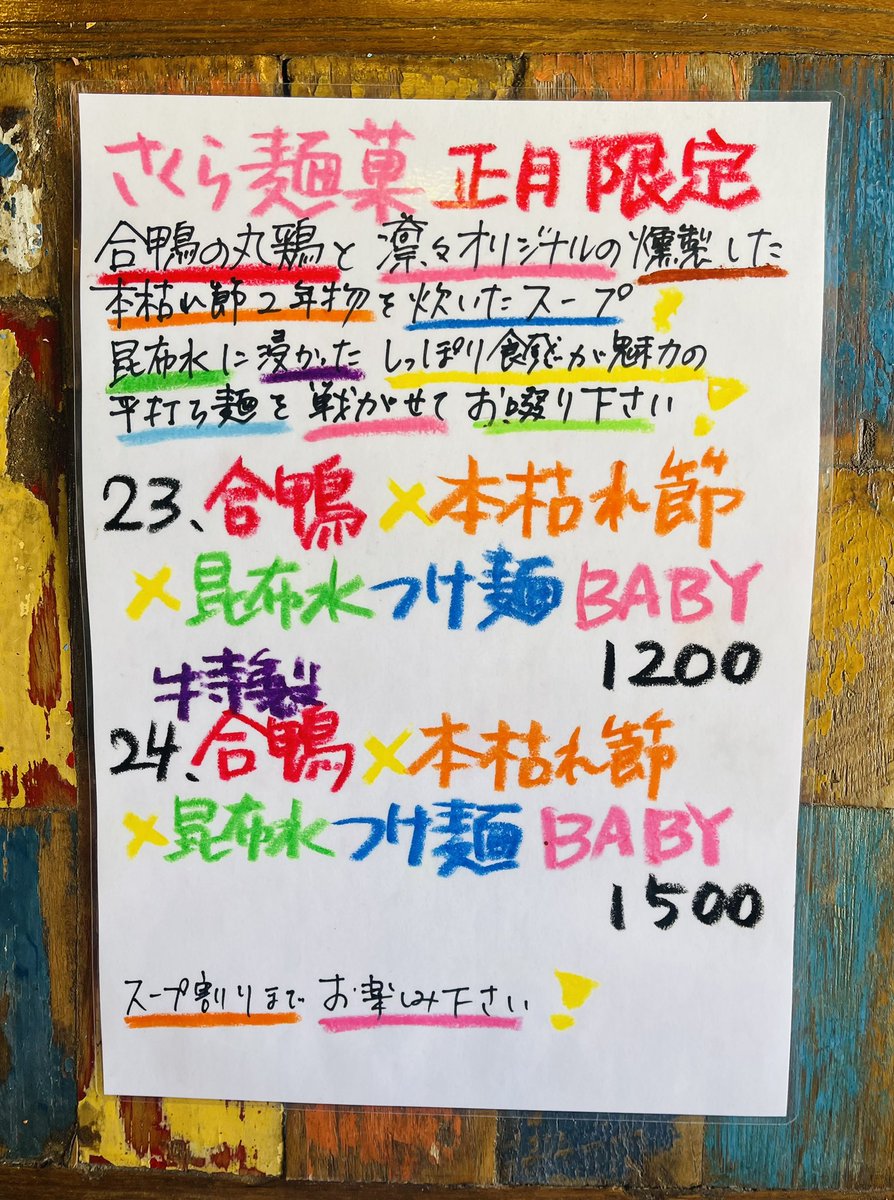 さくら麺菓 正月限定
合鴨の丸鶏と 凛々オリジナルの燻製した
本枯れ節2年物を炊いたスープ
昆布水に浸かった しっぽり食感が魅力の
平打ち麺を 戦がせて お啜り下さい
23、合鴨×本枯れ節
×昆布水つけ麺BABY
1200
特製
24、合鴨×本枯れ節
×昆布水つけ麺BABY
1500
スープ割りまで お楽しみ下さい!